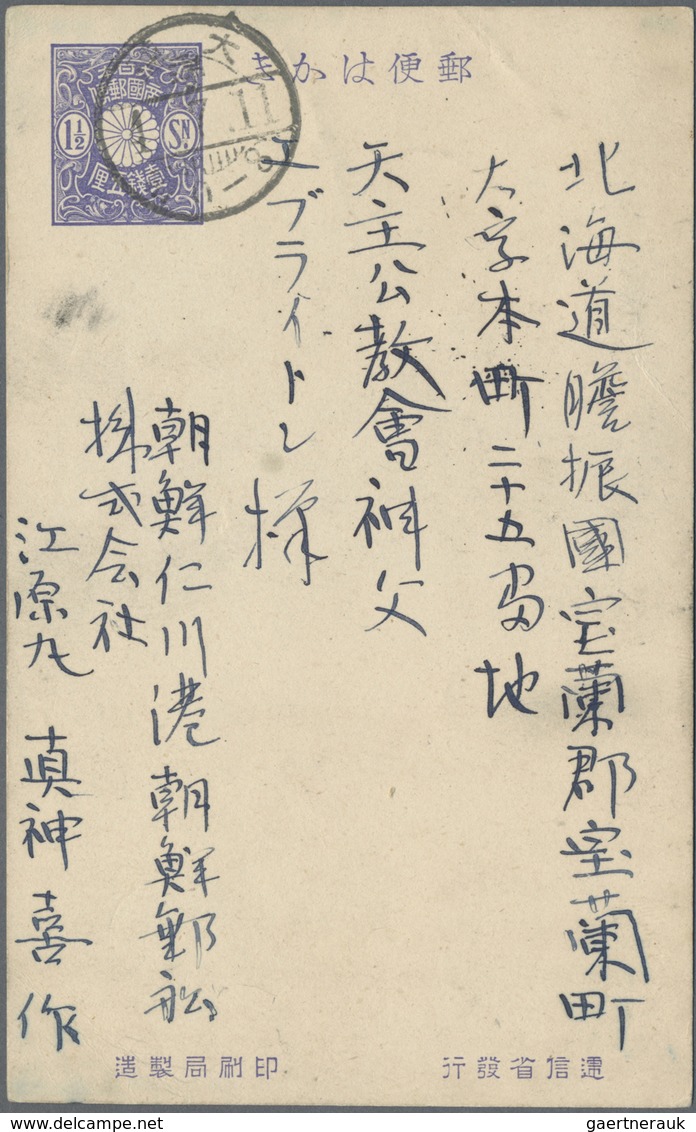 郵便はかき
大日本
帝國郵便
1½ Sɴ.
壹錢五厘
11
北海道膽振國室蘭郡室蘭町
大字本町二十五番地
天主公教會神父
エブライトレ様
朝鮮仁川港朝鮮郵船
株式会社
江原丸 真神喜作
遞信省發行
印刷局製造
gaertnerauk